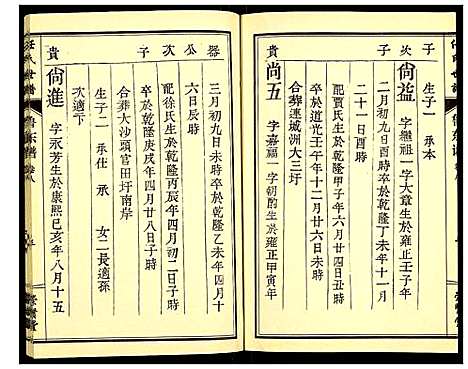 子
次
尙益
生子一 承本
字繼祖一字大章生於雍正壬子年
二月初九日酉時卒於乾隆丁未年十一月
二十一日酉時
配賈氏生於乾隆甲子年六月廿四日子時
卒於道光壬午年十二月廿六日寅時
合葬連城洲大圩
貴
尚五
字嘉福一字初酌生於雍正甲寅年
器
公
次
子
三月初九日未時卒於乾隆乙未年四月十
六日辰時
配徐氏生於乾隆丙辰年四月初二日子時
卒於乾隆庚戌年四月廿八日子時
合葬大沙頭官田圩南岸
生子二 承仕 承 女二長適孫
次適卞
貴
尙進
字永芳生於康熙己亥年八月十五
任氏世譜